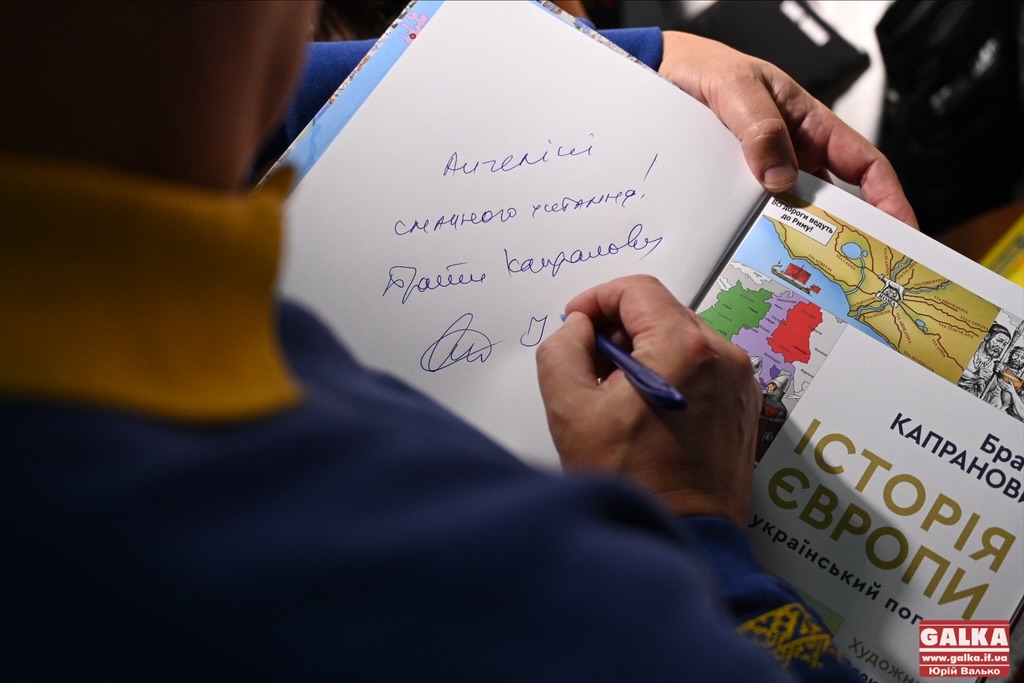 Анчеліні
смачного читання!
Брати Капранови
Всі дороги ведуть
до Риму!
Бра
КАПРАНОВ
ІСТОРІЯ
ЄВРОПИ
український пог
Художн
GALKA
www.galka.if.ua
Юрій Валько